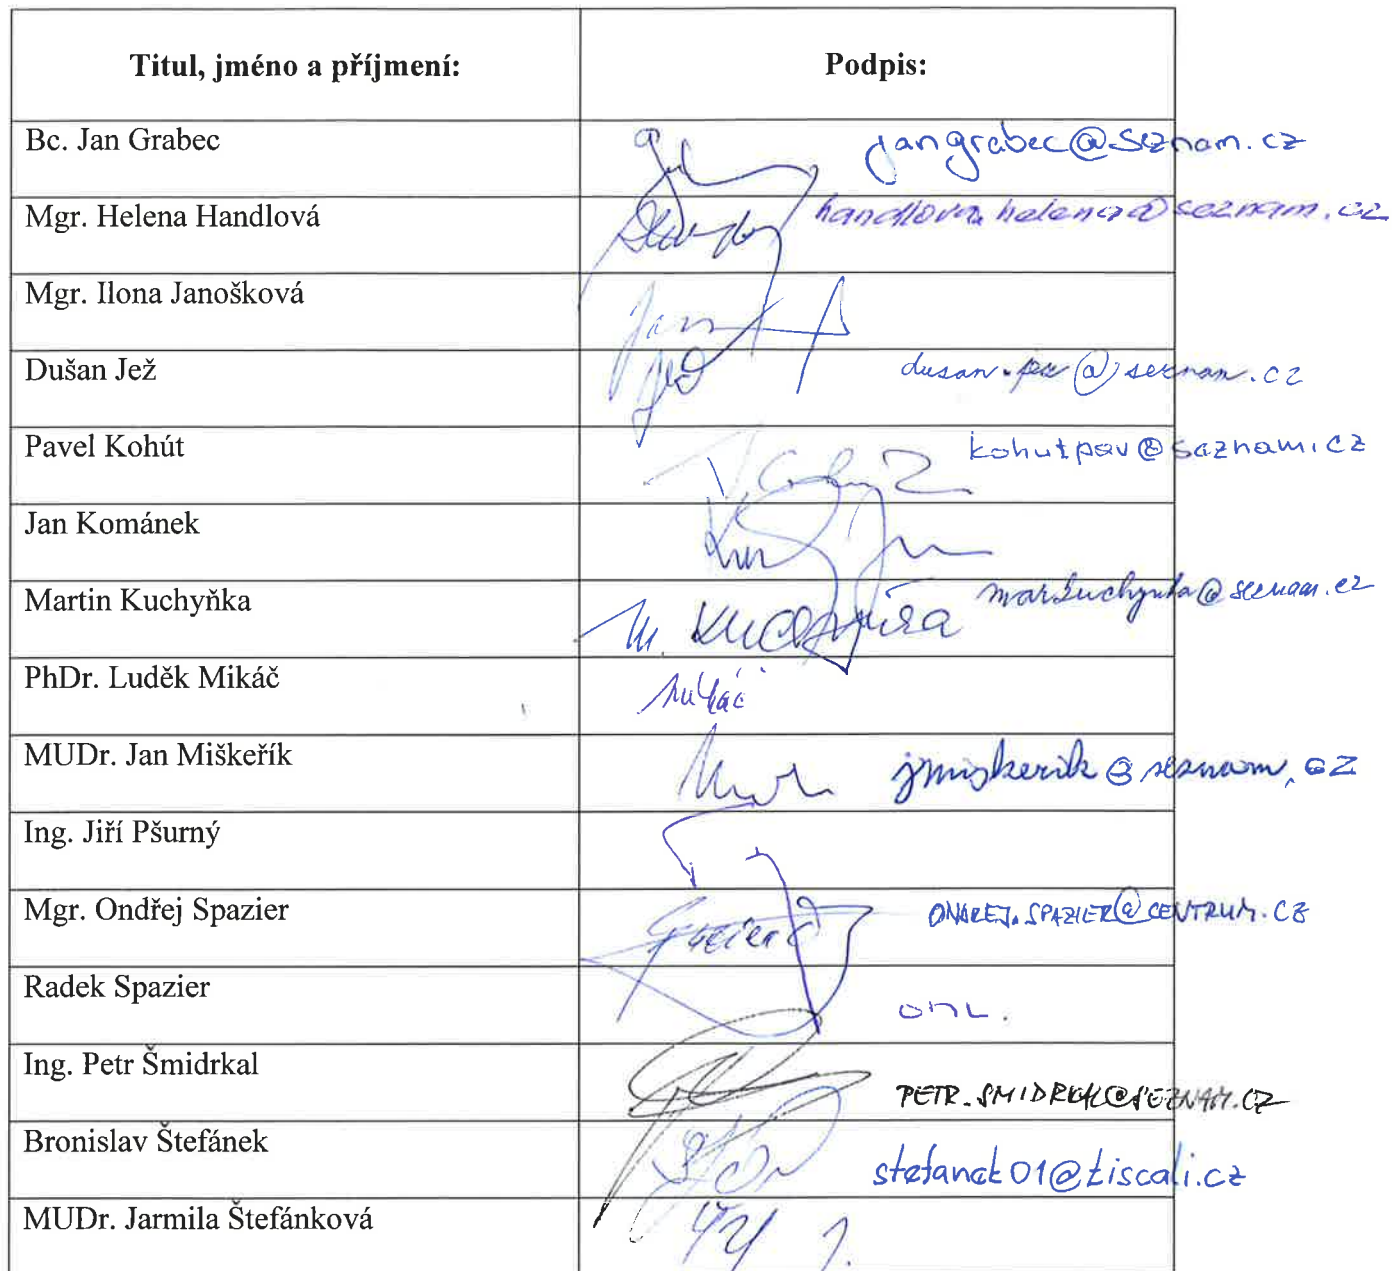 Titul, jméno a příjmení: Podpis:
Bc. Jan Grabec jangrabec@seznam.cz
Mgr. Helena Handlová handlova.helena@seznam.cz
Mgr. Ilona Janošková
Dušan Jež
Pavel Kohút kohutpav@seznam.cz
Jan Kománek
Martin Kuchyňka M. Kuchyňka
PhDr. Luděk Mikáč Mikáč
MUDr. Jan Miškeřík jmiskerik@seznam.cz
Ing. Jiří Pšurný
Mgr. Ondřej Spazier ONDREJ.SPAZIER@CENTRUM.CZ
Radek Spazier OML.
Ing. Petr Šmidrkal PETR.SMIDRKAL@SEZNAM.CZ
Bronislav Štefánek stefanek01@tiscali.cz
MUDr. Jarmila Štefánková